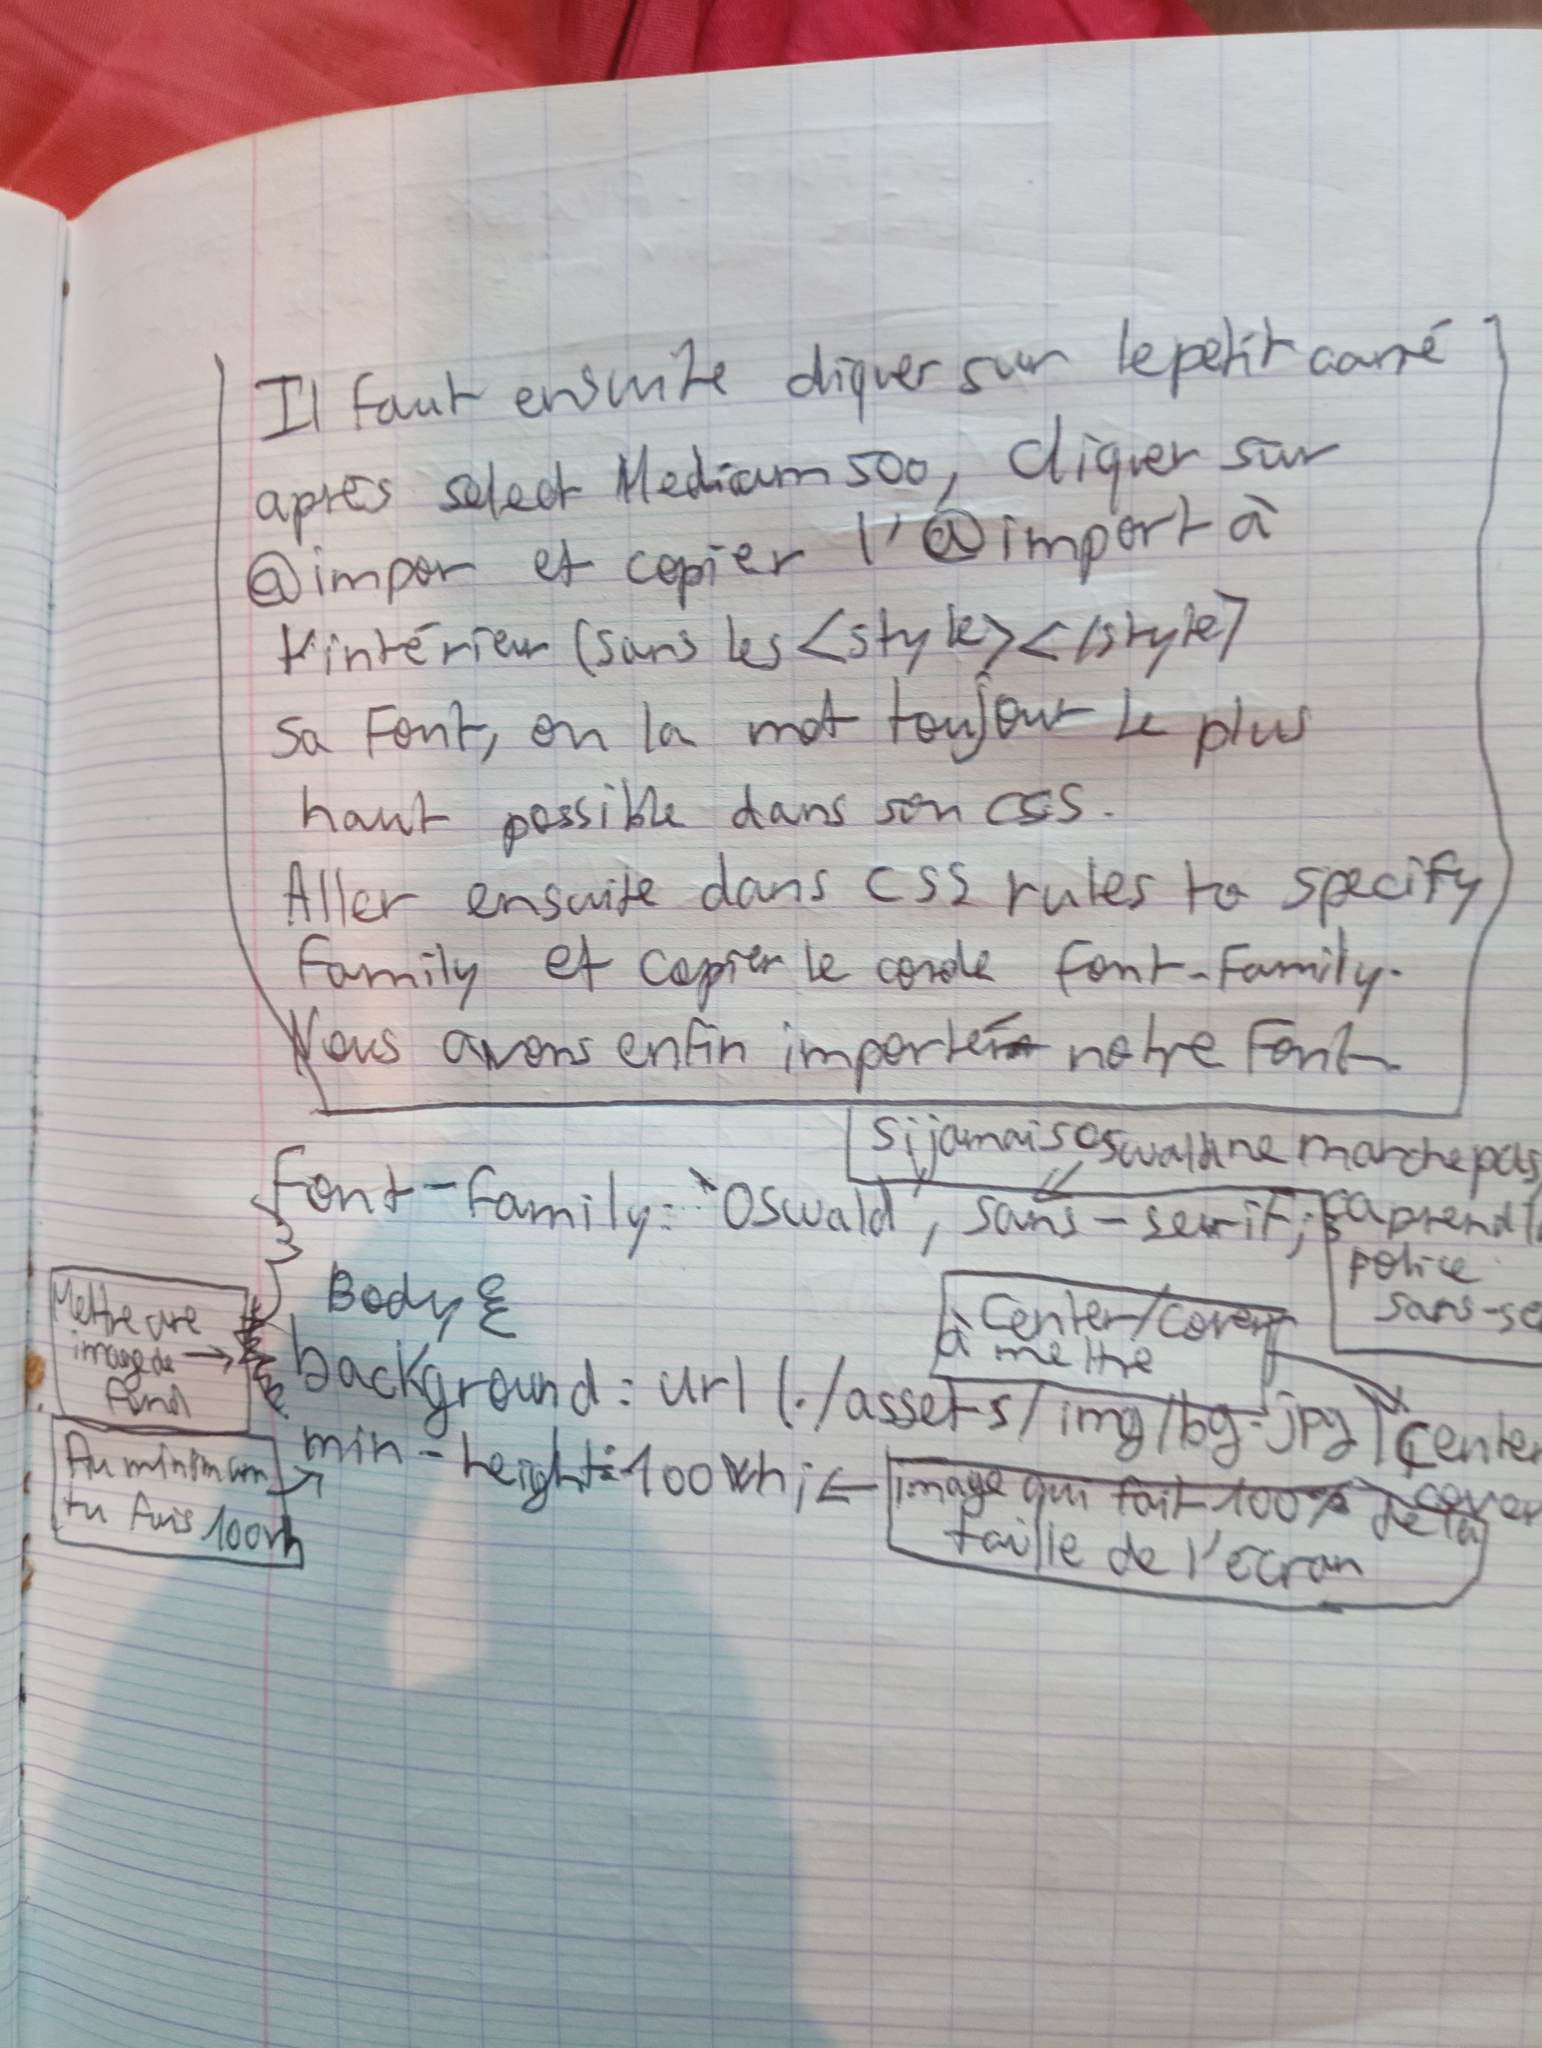 Il faut ensuite cliquer sur le petit carré
après select Medium 500, cliquer sur
@impor et copier l'@import à
l'intérieur (sans les <style></style>
sa Font, on la met toujour le plus
haut possible dans son CSS.
Aller ensuite dans CSS rules to specify
family et copier le code font-family.
Nous avons enfin importé notre Font
si jamais Oswald ne marche pas,
font-family: 'Oswald', sans-serif;
ça prend la
police
sans-se
Body {
Mettre une
image de
fond
à center/cover
mettre
background: url(./assets/img/bg.jpg) center
cover
min-height: 100vh;
Au minimum
tu fais 100vh
image qui fait 100% de la
taille de l'écran